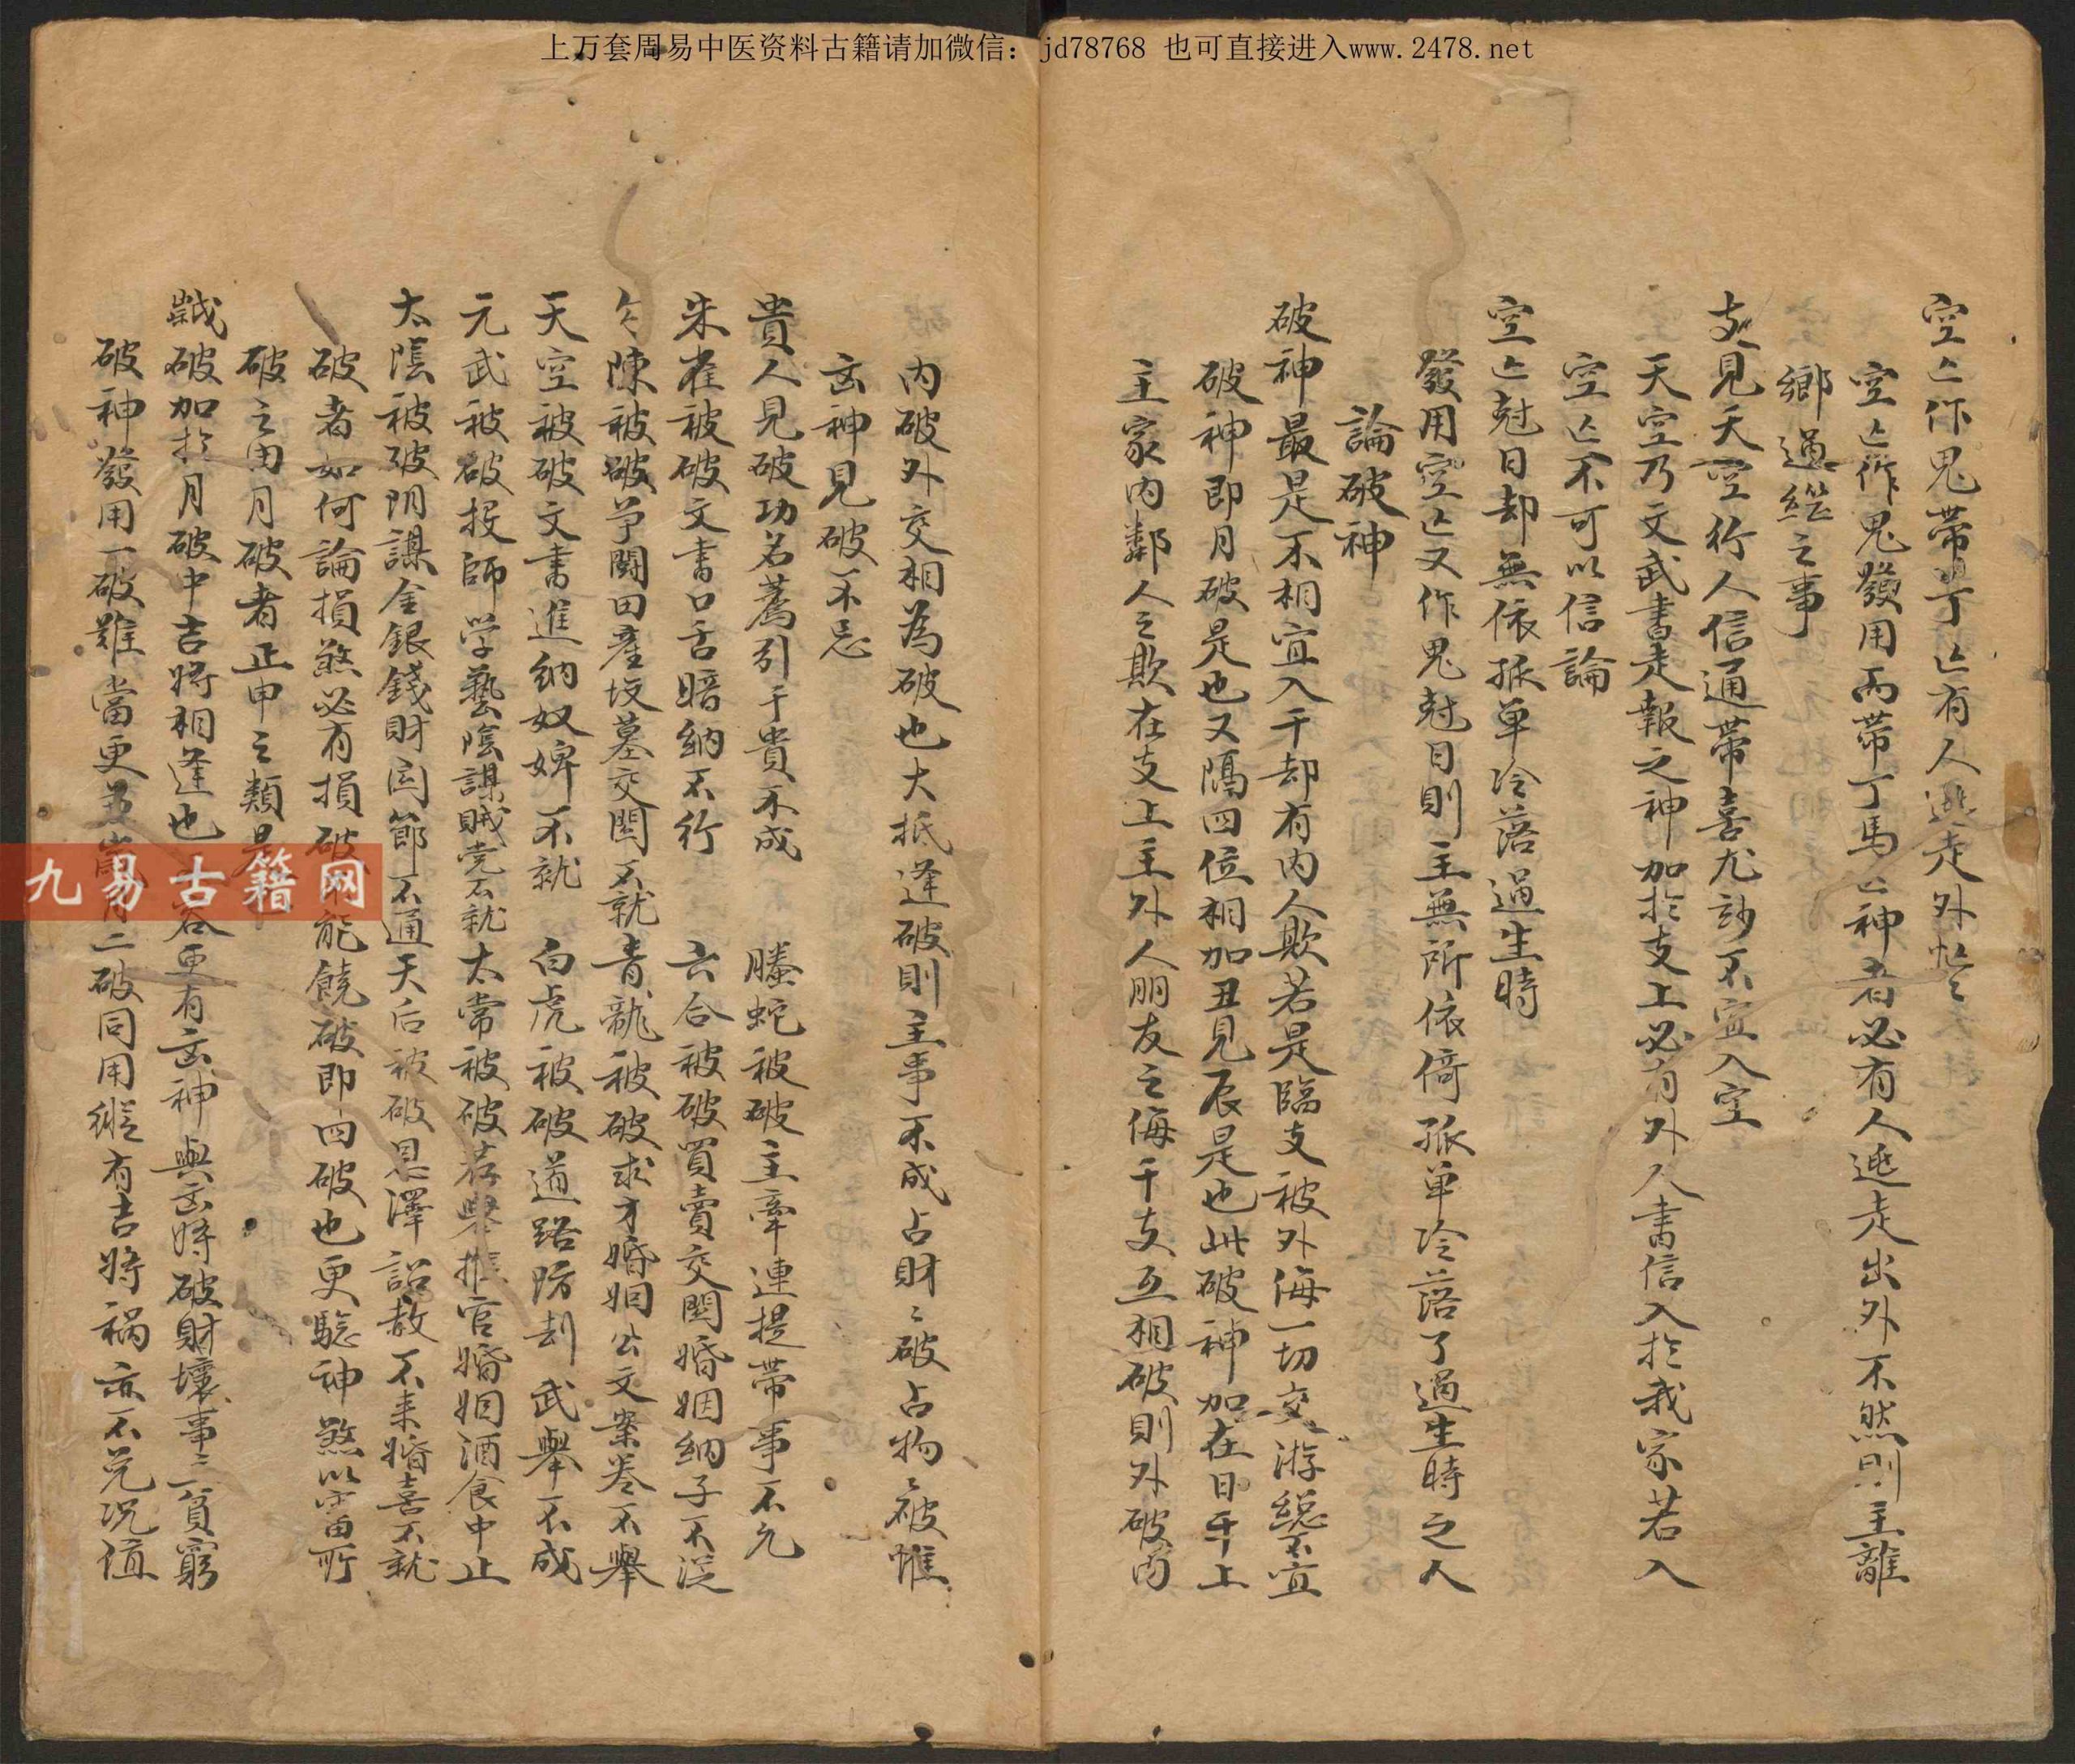 上万套周易中医资料古籍请加微信：jd78768 也可直接进入www.2478.net
空亡作鬼帶丁亡有人逃走外
空亡作鬼發用而帶丁馬亡神者必有人逃走出外不然則主離
鄉過継之事
支見天空行人信通帶喜尤妙不宜入空
天空乃文武書走報之神加於支上必有外人書信入於我家若入
空亡不可以信論
空亡尅日却無依孤单冷落過生時
發用空亡又作鬼尅日則主無所依倚孤单冷落了過生時之人
論破神
破神最是不相宜入干却有内人欺若是臨支被外侮一切交游総不宜
破神即月破是也又隔四位相加丑見辰是也此破神加在日干上
主家内鄰人之欺在支上主外人朋友之侮干支互相破則外破内
内破外交相為破也大抵逢破則主事不成占財〻破占物〻破惟
凶神見破不忌
貴人見破功名薦引干貴不成 螣蛇被破主牽連提帶事不允
朱雀被破文書口舌暗納不行 六合被破買賣交関婚姻納子不従
勾陳被破爭鬪田產坟墓交関不就 青龍被破求才婚姻公文案卷不舉
天空被破文書進納奴婢不就 白虎被破道路防刦武舉不成
元武被破投師学藝陰謀賊党不就 太常被破荐舉推官婚姻酒食中止
太陰被破阴謀金銀錢財関節不通 天后被破恩澤詔赦不来婚喜不就
破者如何論損煞必有損破能饒破即四破也更騐神煞以審所
破之由月破者正申之類是
嵗破加於月破中吉將相逢也容更有凶神與凶將破財壞事〻貧窮
破神發用一破難當更月二破同用縱有吉將禍亦不免况值
九易古籍网